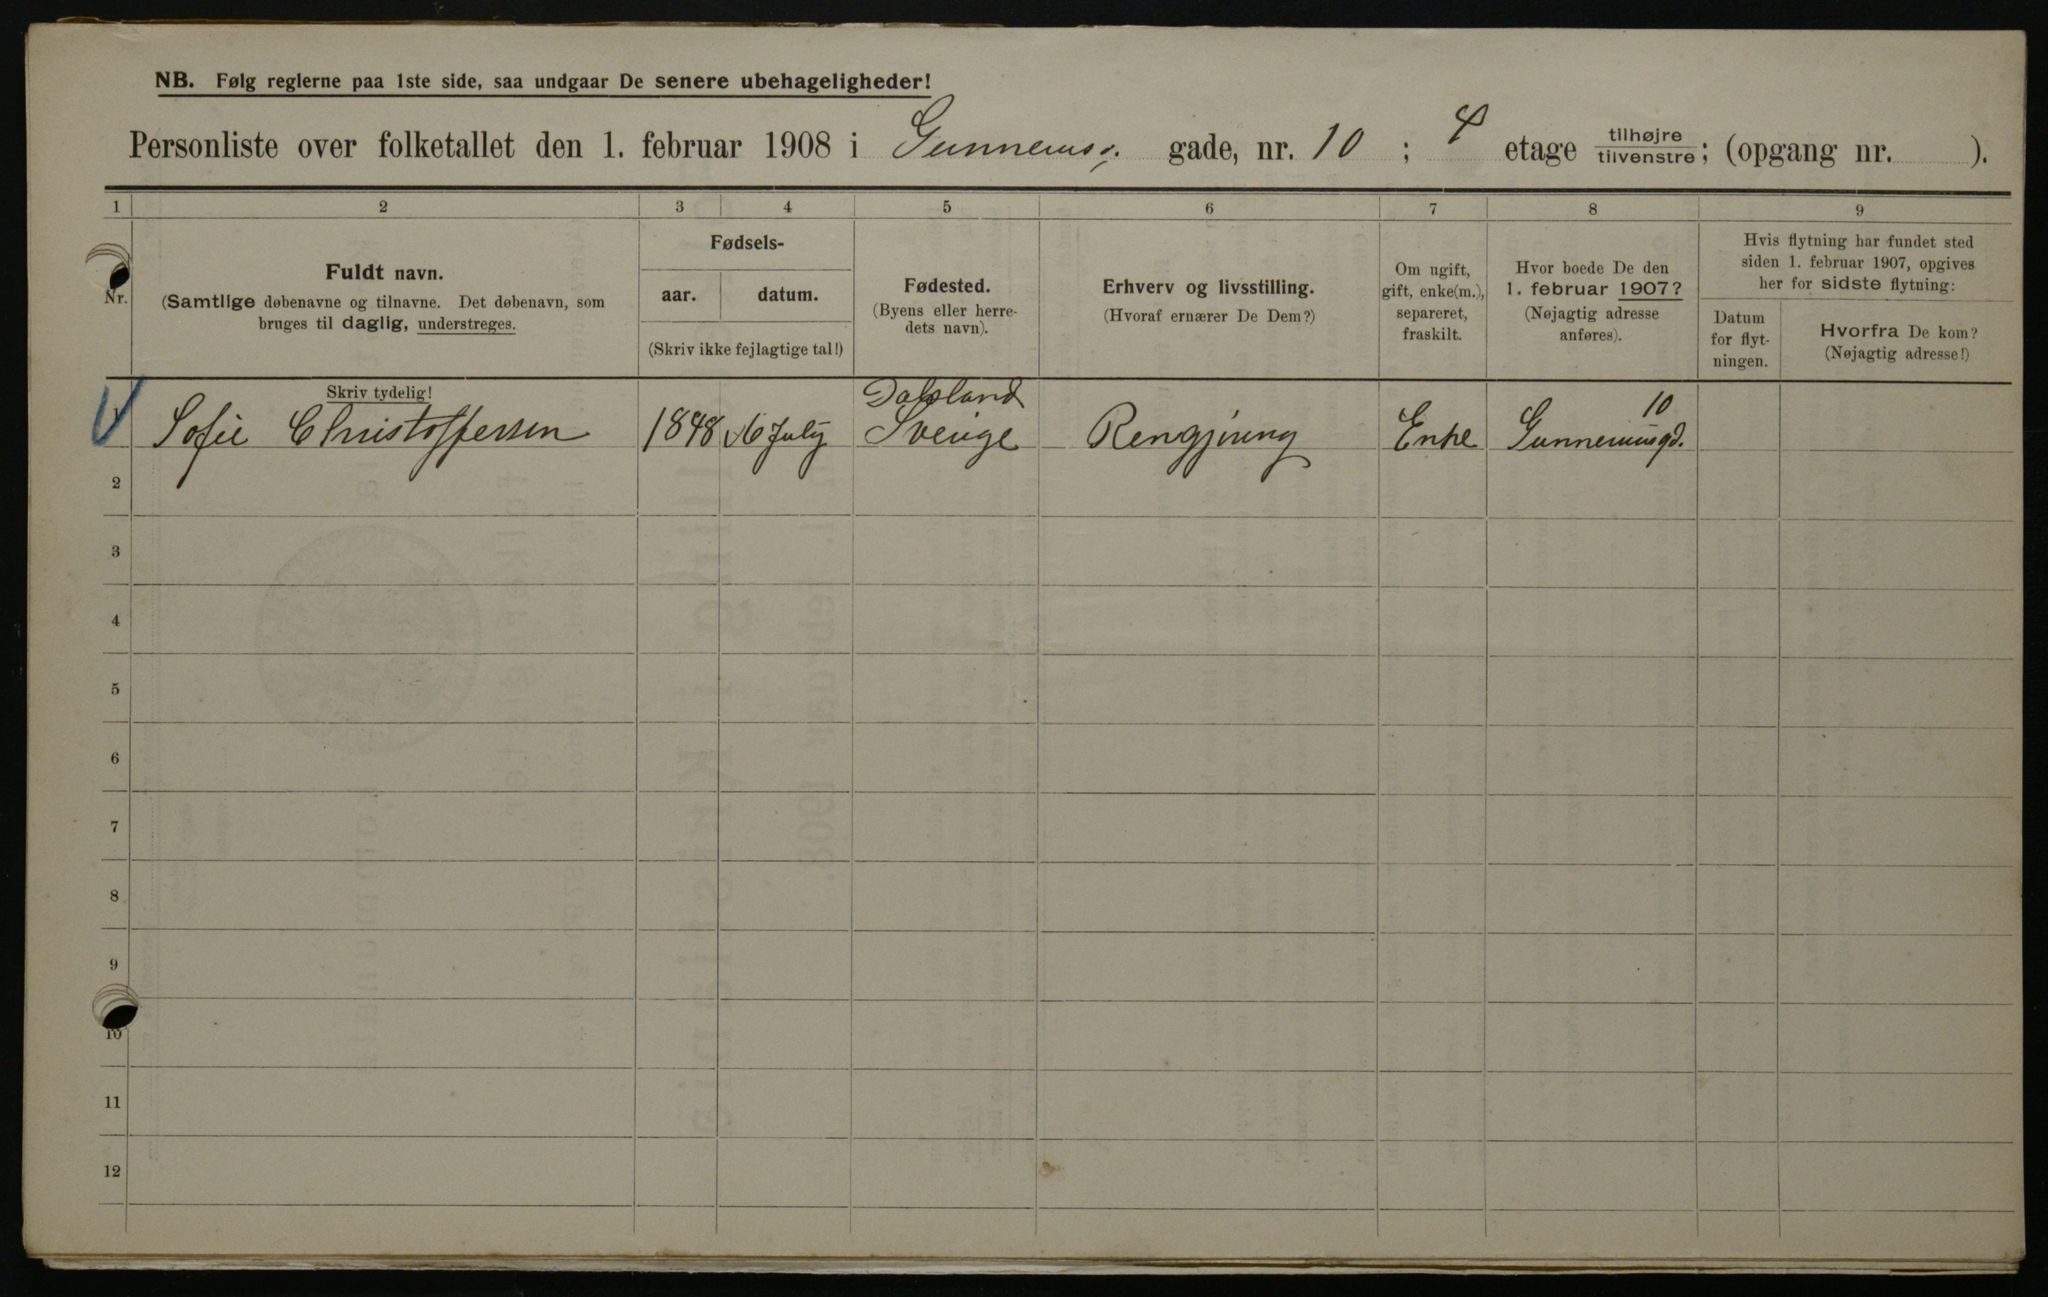 NB. Følg reglerne paa 1ste side, saa undgaar De senere ubehageligheder!
Personliste over folketallet den 1. februar 1908 i Gunnerusg. gade, nr. 10 ; 4 etage tilhøjre/tilvenstre; (opgang nr. ).
1 2 3 4 5 6 7 8 9
Nr.
Fuldt navn.
(Samtlige døbenavne og tilnavne. Det døbenavn, som
bruges til daglig, understreges.
Fødsels-
aar. datum.
(Skriv ikke fejlagtige tal!)
Fødested.
(Byens eller herre-
dets navn).
Erhverv og livsstilling.
(Hvoraf ernærer De Dem?)
Om ugift,
gift, enke(m.),
separeret,
fraskilt.
Hvor boede De den
1. februar 1907?
(Nøjagtig adresse
anføres).
Hvis flytning har fundet sted
siden 1. februar 1907, opgives
her for sidste flytning:
Datum
for flyt-
ningen.
Hvorfra De kom?
(Nøjagtig adresse!)
Skriv tydelig!
Dalsland 10
1 Sofie Christoffersen 1848 16 July Sverige Rengjøring Enke Gunnerusgd.
2
3
4
5
6
7
8
9
10
11
12